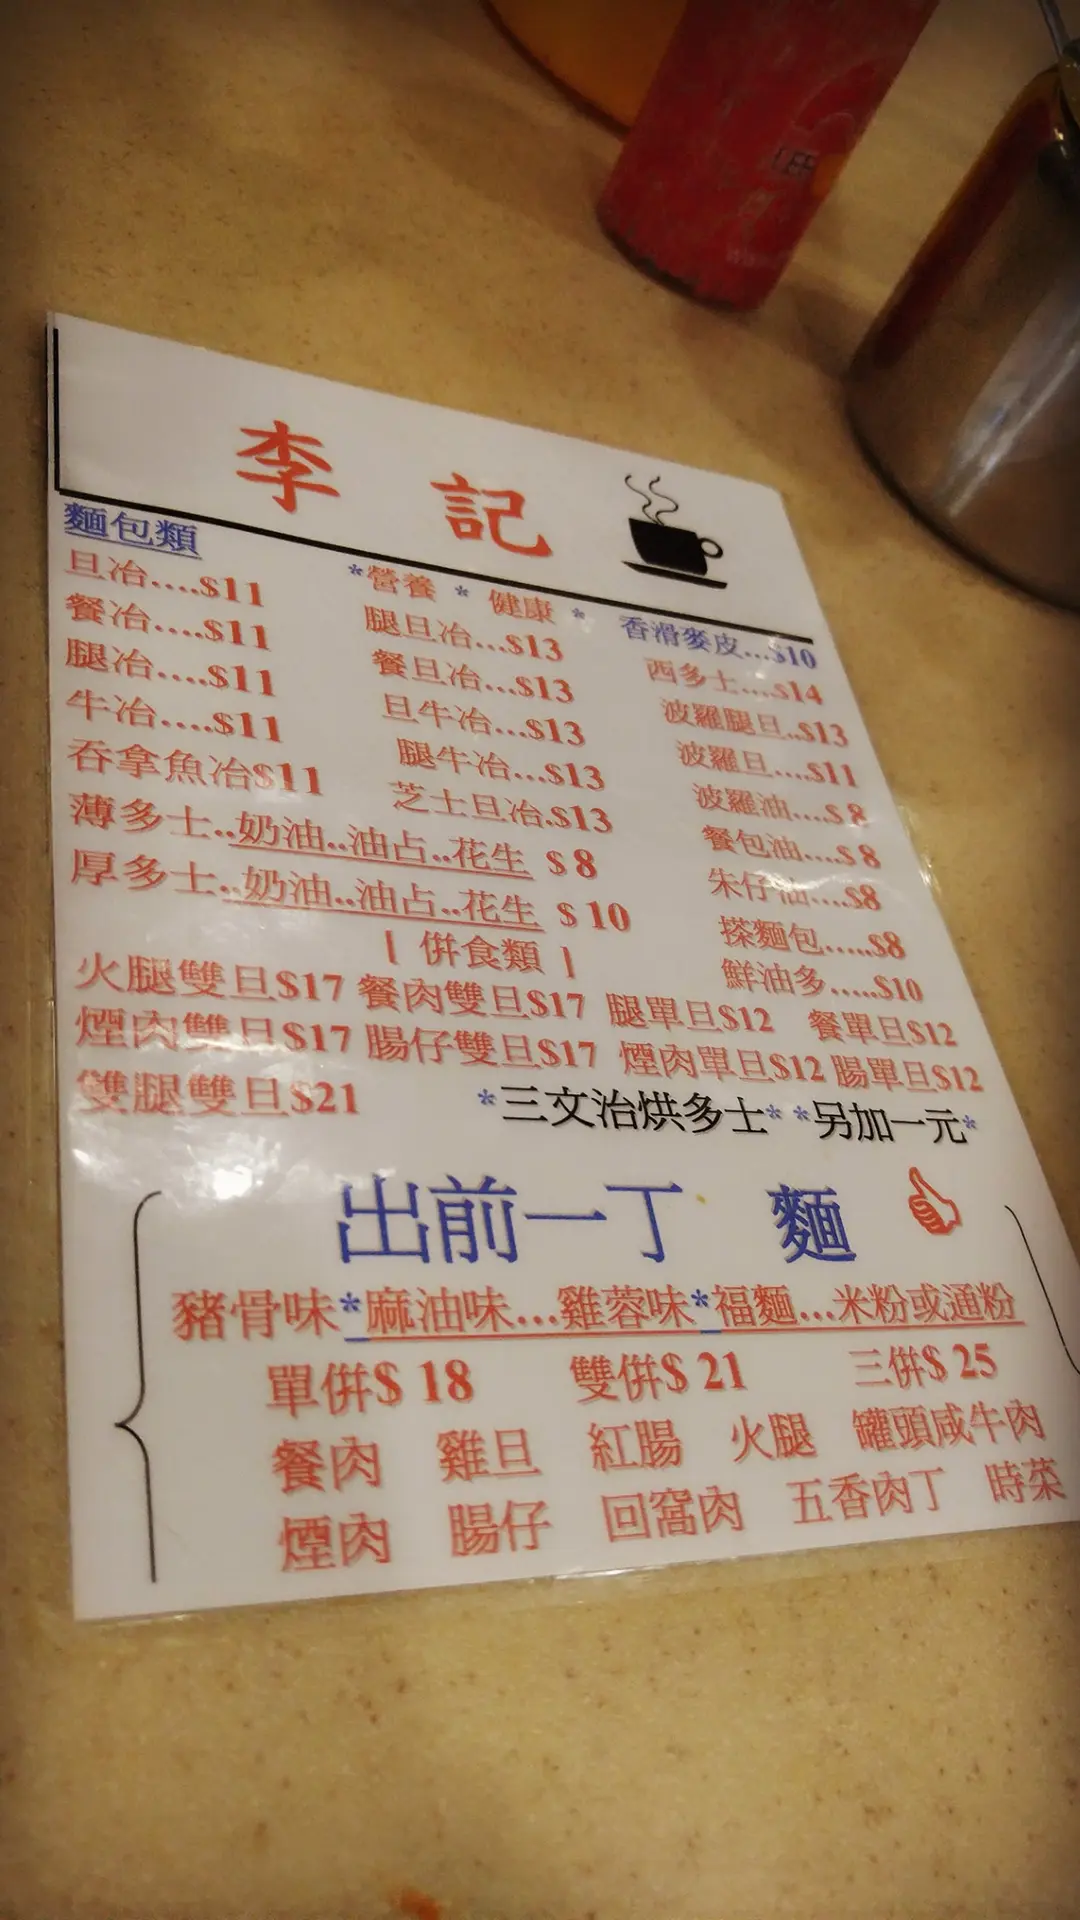 李記
麵包類
旦冶....$11
餐冶....$11
腿冶....$11
牛冶....$11
吞拿魚冶$11
*營養 * 健康 *
腿旦冶...$13
餐旦冶...$13
旦牛冶...$13
腿牛冶...$13
芝士旦冶.$13
香滑麥皮...$10
西多士....$14
波羅腿旦..$13
波羅旦....$11
波羅油....$8
餐包油....$8
朱仔油....$8
搽麵包.....$8
鮮油多.....$10
薄多士..奶油..油占..花生 $8
厚多士..奶油..油占..花生 $10
[ 併食類 ]
火腿雙旦$17 餐肉雙旦$17 腿單旦$12 餐單旦$12
煙肉雙旦$17 腸仔雙旦$17 煙肉單旦$12 腸單旦$12
雙腿雙旦$21
*三文治烘多士* *另加一元*
出前一丁 麵
豬骨味*麻油味...雞蓉味*福麵...米粉或通粉
單併$ 18 雙併$ 21 三併$ 25
餐肉 雞旦 紅腸 火腿 罐頭咸牛肉
煙肉 腸仔 回窩肉 五香肉丁 時菜